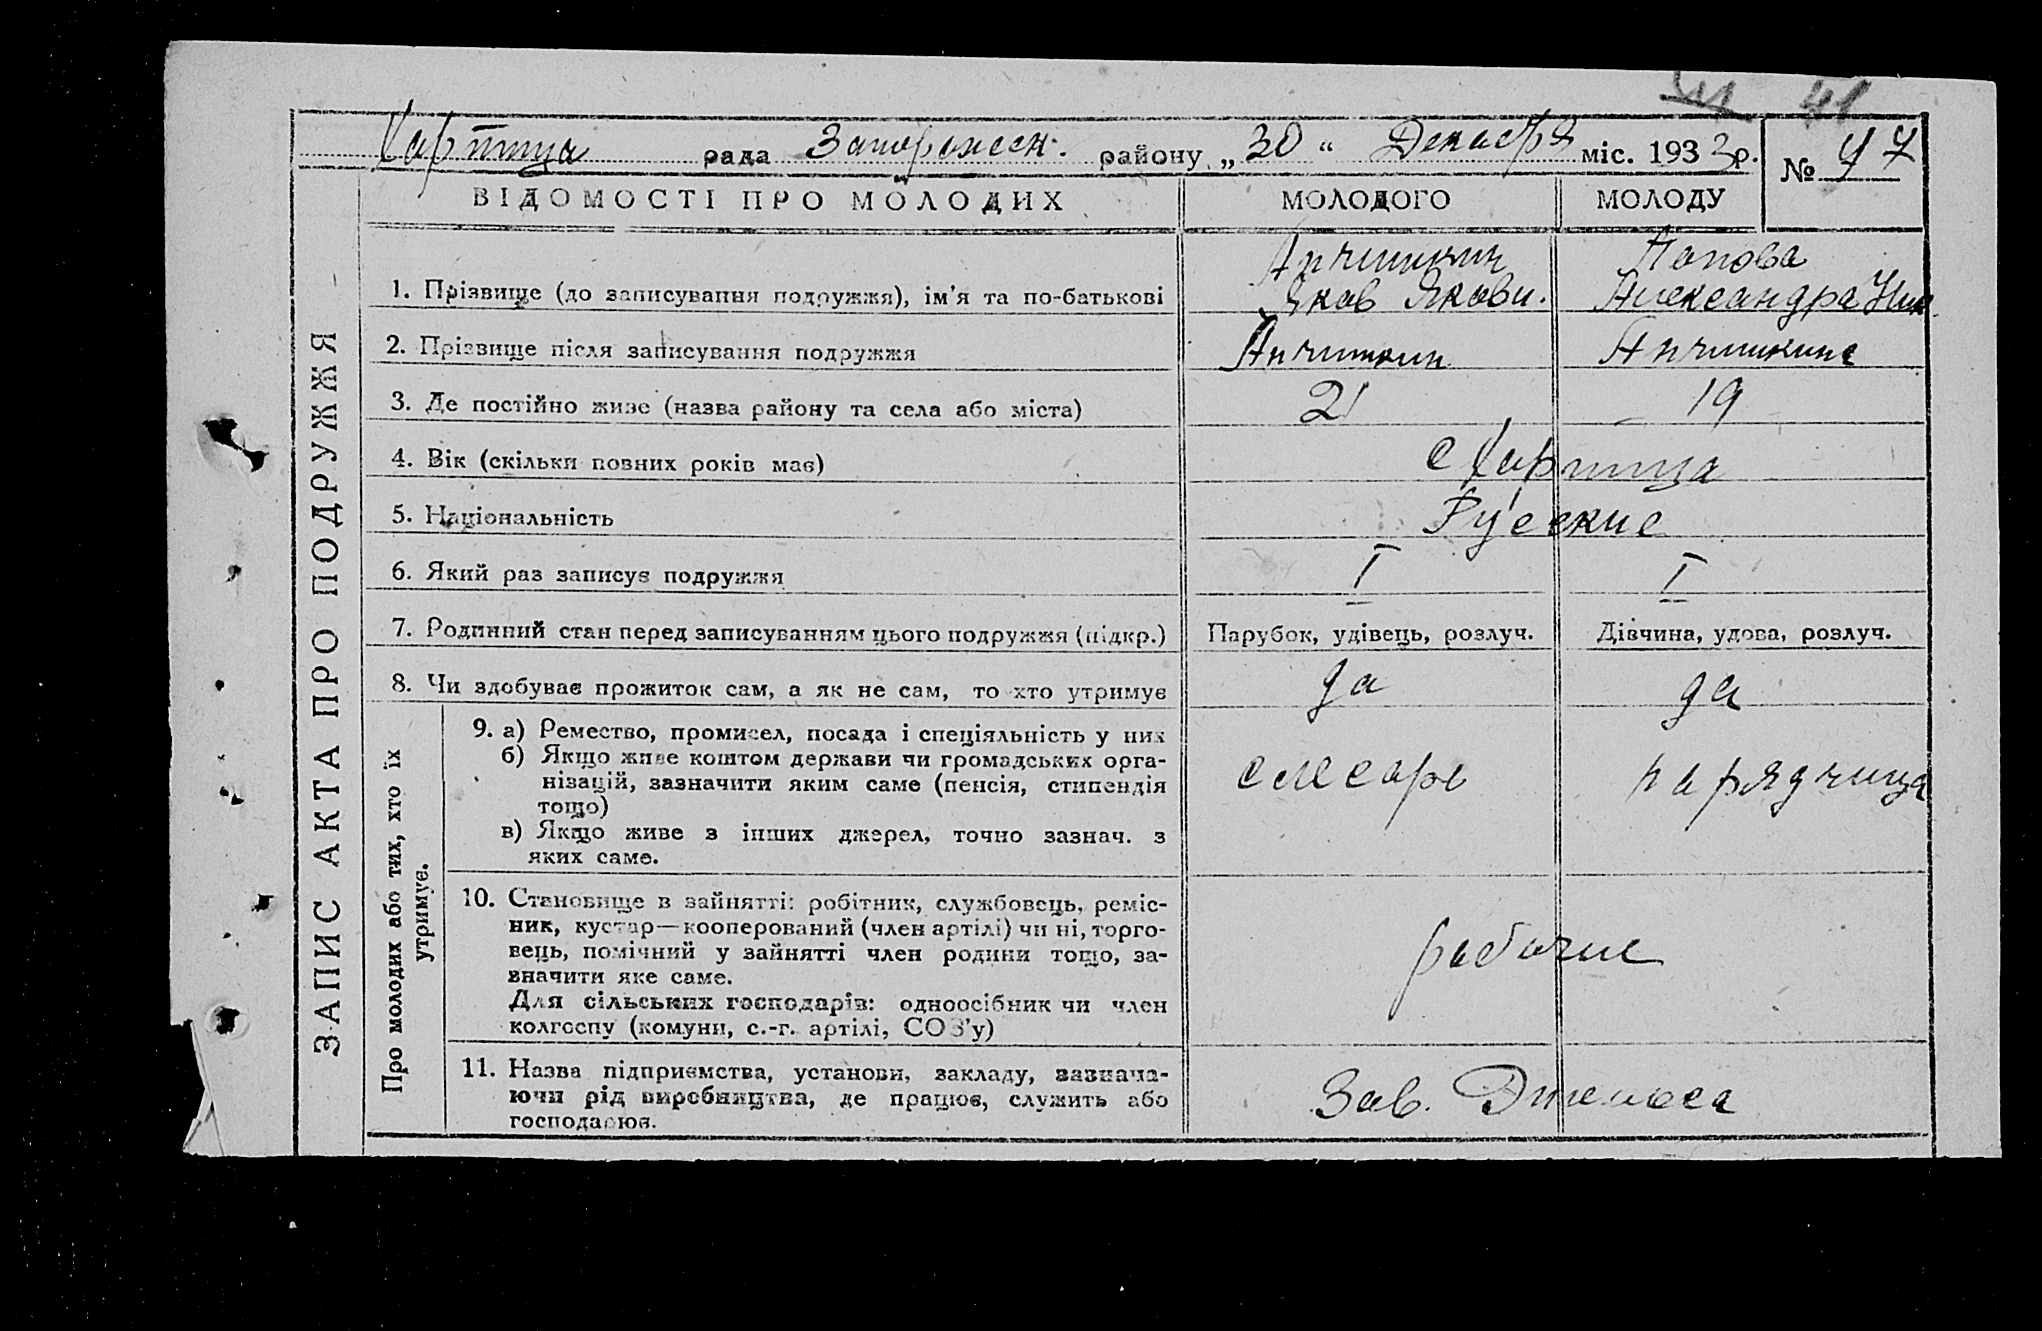 41
Хартица рада Запорожск. району „30“ Декабря міс. 1933 р. № 47
ВІДОМОСТІ ПРО МОЛОДИХ МОЛОДОГО МОЛОДУ
ЗАПИС АКТА ПРО ПОДРУЖЖЯ
Анчишкин Попова
1. Прізвище (до записування подружжя), ім'я та по-батькові Яков Якови. Александра Ник
2. Прізвище після записування подружжя Анчишкин Анчишкина
3. Де постійно живе (назва району та села або міста) 21 19
4. Вік (скільки повних років має) с Хартица
5. Національність Русские
6. Який раз записує подружжя I I
7. Родинний стан перед записуванням цього подружжя (підкр.) Парубок, удівець, розлуч. Дівчина, удова, розлуч.
8. Чи здобуває прожиток сам, а як не сам, то хто утримує да да
Про молодих або тих, хто їх
утримує.
9. а) Ремество, промисел, посада і спеціяльність у них
б) Якщо живе коштом держави чи громадських орга-
нізацій, зазначити яким саме (пенсія, стипендія слесарь нарядчица
тощо)
в) Якщо живе з інших джерел, точно зазнач. з
яких саме.
10. Становище в зайнятті: робітник, службовець, реміс-
ник, кустар—кооперований (член артілі) чи ні, торго-
вець, помічний у зайнятті член родини тощо, за- рабочие
значити яке саме.
Для сільських господарів: одноосібник чи член
колгоспу (комуни, с.-г. артілі, СОЗ'у)
11. Назва підприємства, установи, закладу, зазнача-
ючи рід виробництва, де працює, служить або Зав. Энгельса
господарює.